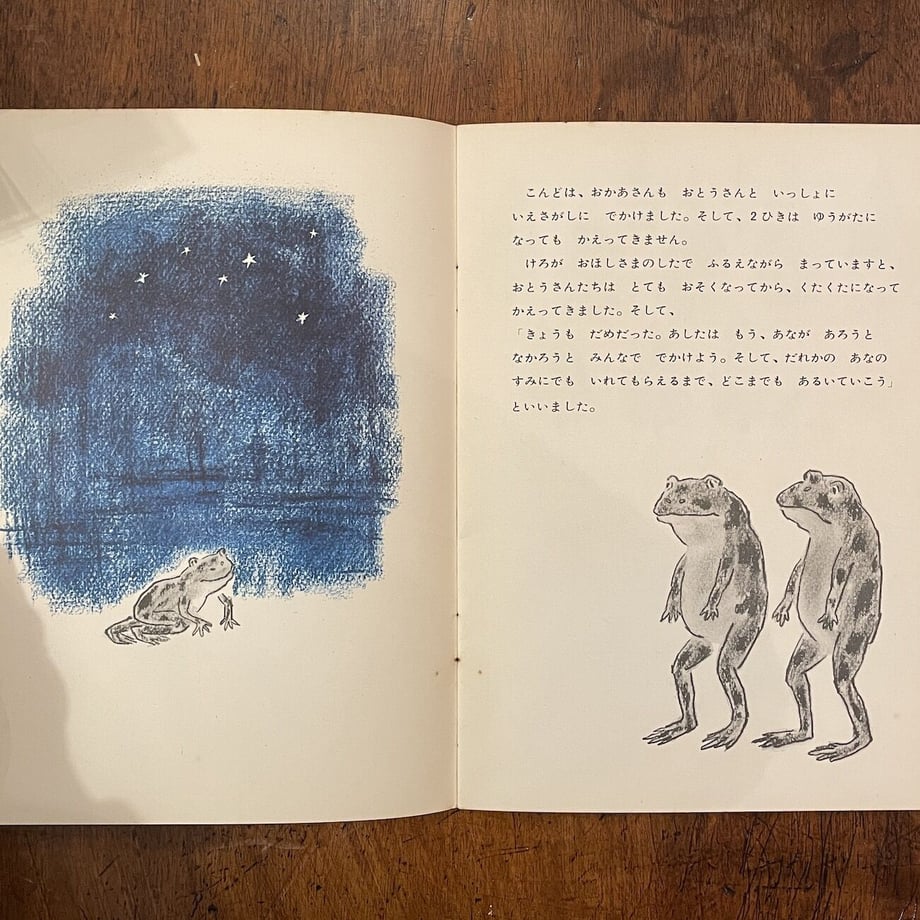 こんどは、おかあさんも　おとうさんと　いっしょに
いえさがしに　でかけました。そして、2ひきは　ゆうがたに
なっても　かえってきません。
けろが　おほしさまのしたで　ふるえながら　まっていますと、
おとうさんたちは　とても　おそくなってから、くたくたになって
かえってきました。そして、
「きょうも　だめだった。あしたは　もう、あなが　あろうと
なかろうと　みんなで　でかけよう。そして、だれかの　あなの
すみにでも　いれてもらえるまで、どこまでも　あるいていこう」
といいました。